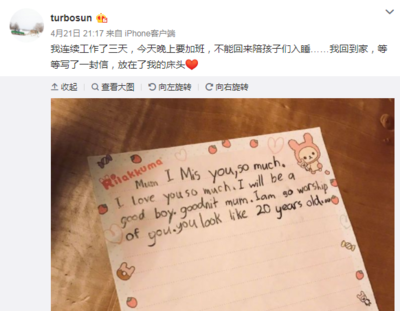 turbosun
4月21日 21:17 来自 iPhone客户端
我连续工作了三天，今天晚上要加班，不能回来陪孩子们入睡……我回到家，等
等写了一封信，放在了我的床头
收起 查看大图 向左旋转 向右旋转
Rilakkuma
Mum I Mis you,so much.
I love you so much.I will be a
good boy.goodnit mum.Iam so worship
of you.you look like 20 years old...